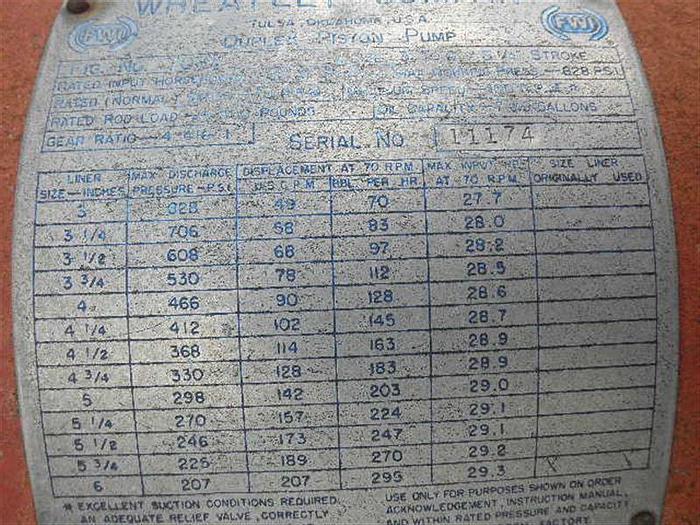 WHEATLEY COMPANY
TULSA, OKLAHOMA, U.S.A.
FWI FWI
DUPLEX PISTON PUMP
FIG. NO. STROKE
RATED INPUT PRESS.—828 P.S.I.
RATED (NORMAL) SPEED
RATED ROD LOAD POUNDS OIL CAPACITY GALLONS
GEAR RATIO SERIAL NO 11174
LINER SIZE—INCHES MAX. DISCHARGE PRESSURE—P.S.I. DISPLACEMENT AT 70 R.P.M. U.S.G.P.M. BBL. PER HR. MAX INPUT HP. AT 70 R.P.M. SIZE LINER ORIGINALLY USED
3 828 49 70 27.7
3 1/4 706 58 83 28.0
3 1/2 608 68 97 28.2
3 3/4 530 78 112 28.5
4 466 90 128 28.6
4 1/4 412 102 145 28.7
4 1/2 368 114 163 28.9
4 3/4 330 128 183 28.9
5 298 142 203 29.0
5 1/4 270 157 224 29.1
5 1/2 246 173 247 29.1
5 3/4 225 189 270 29.2
6 207 207 295 29.3
* EXCELLENT SUCTION CONDITIONS REQUIRED.
AN ADEQUATE RELIEF VALVE, CORRECTLY
USE ONLY FOR PURPOSES SHOWN ON ORDER
ACKNOWLEDGEMENT, INSTRUCTION MANUAL,
AND WITHIN RATED PRESSURE AND CAPACITY